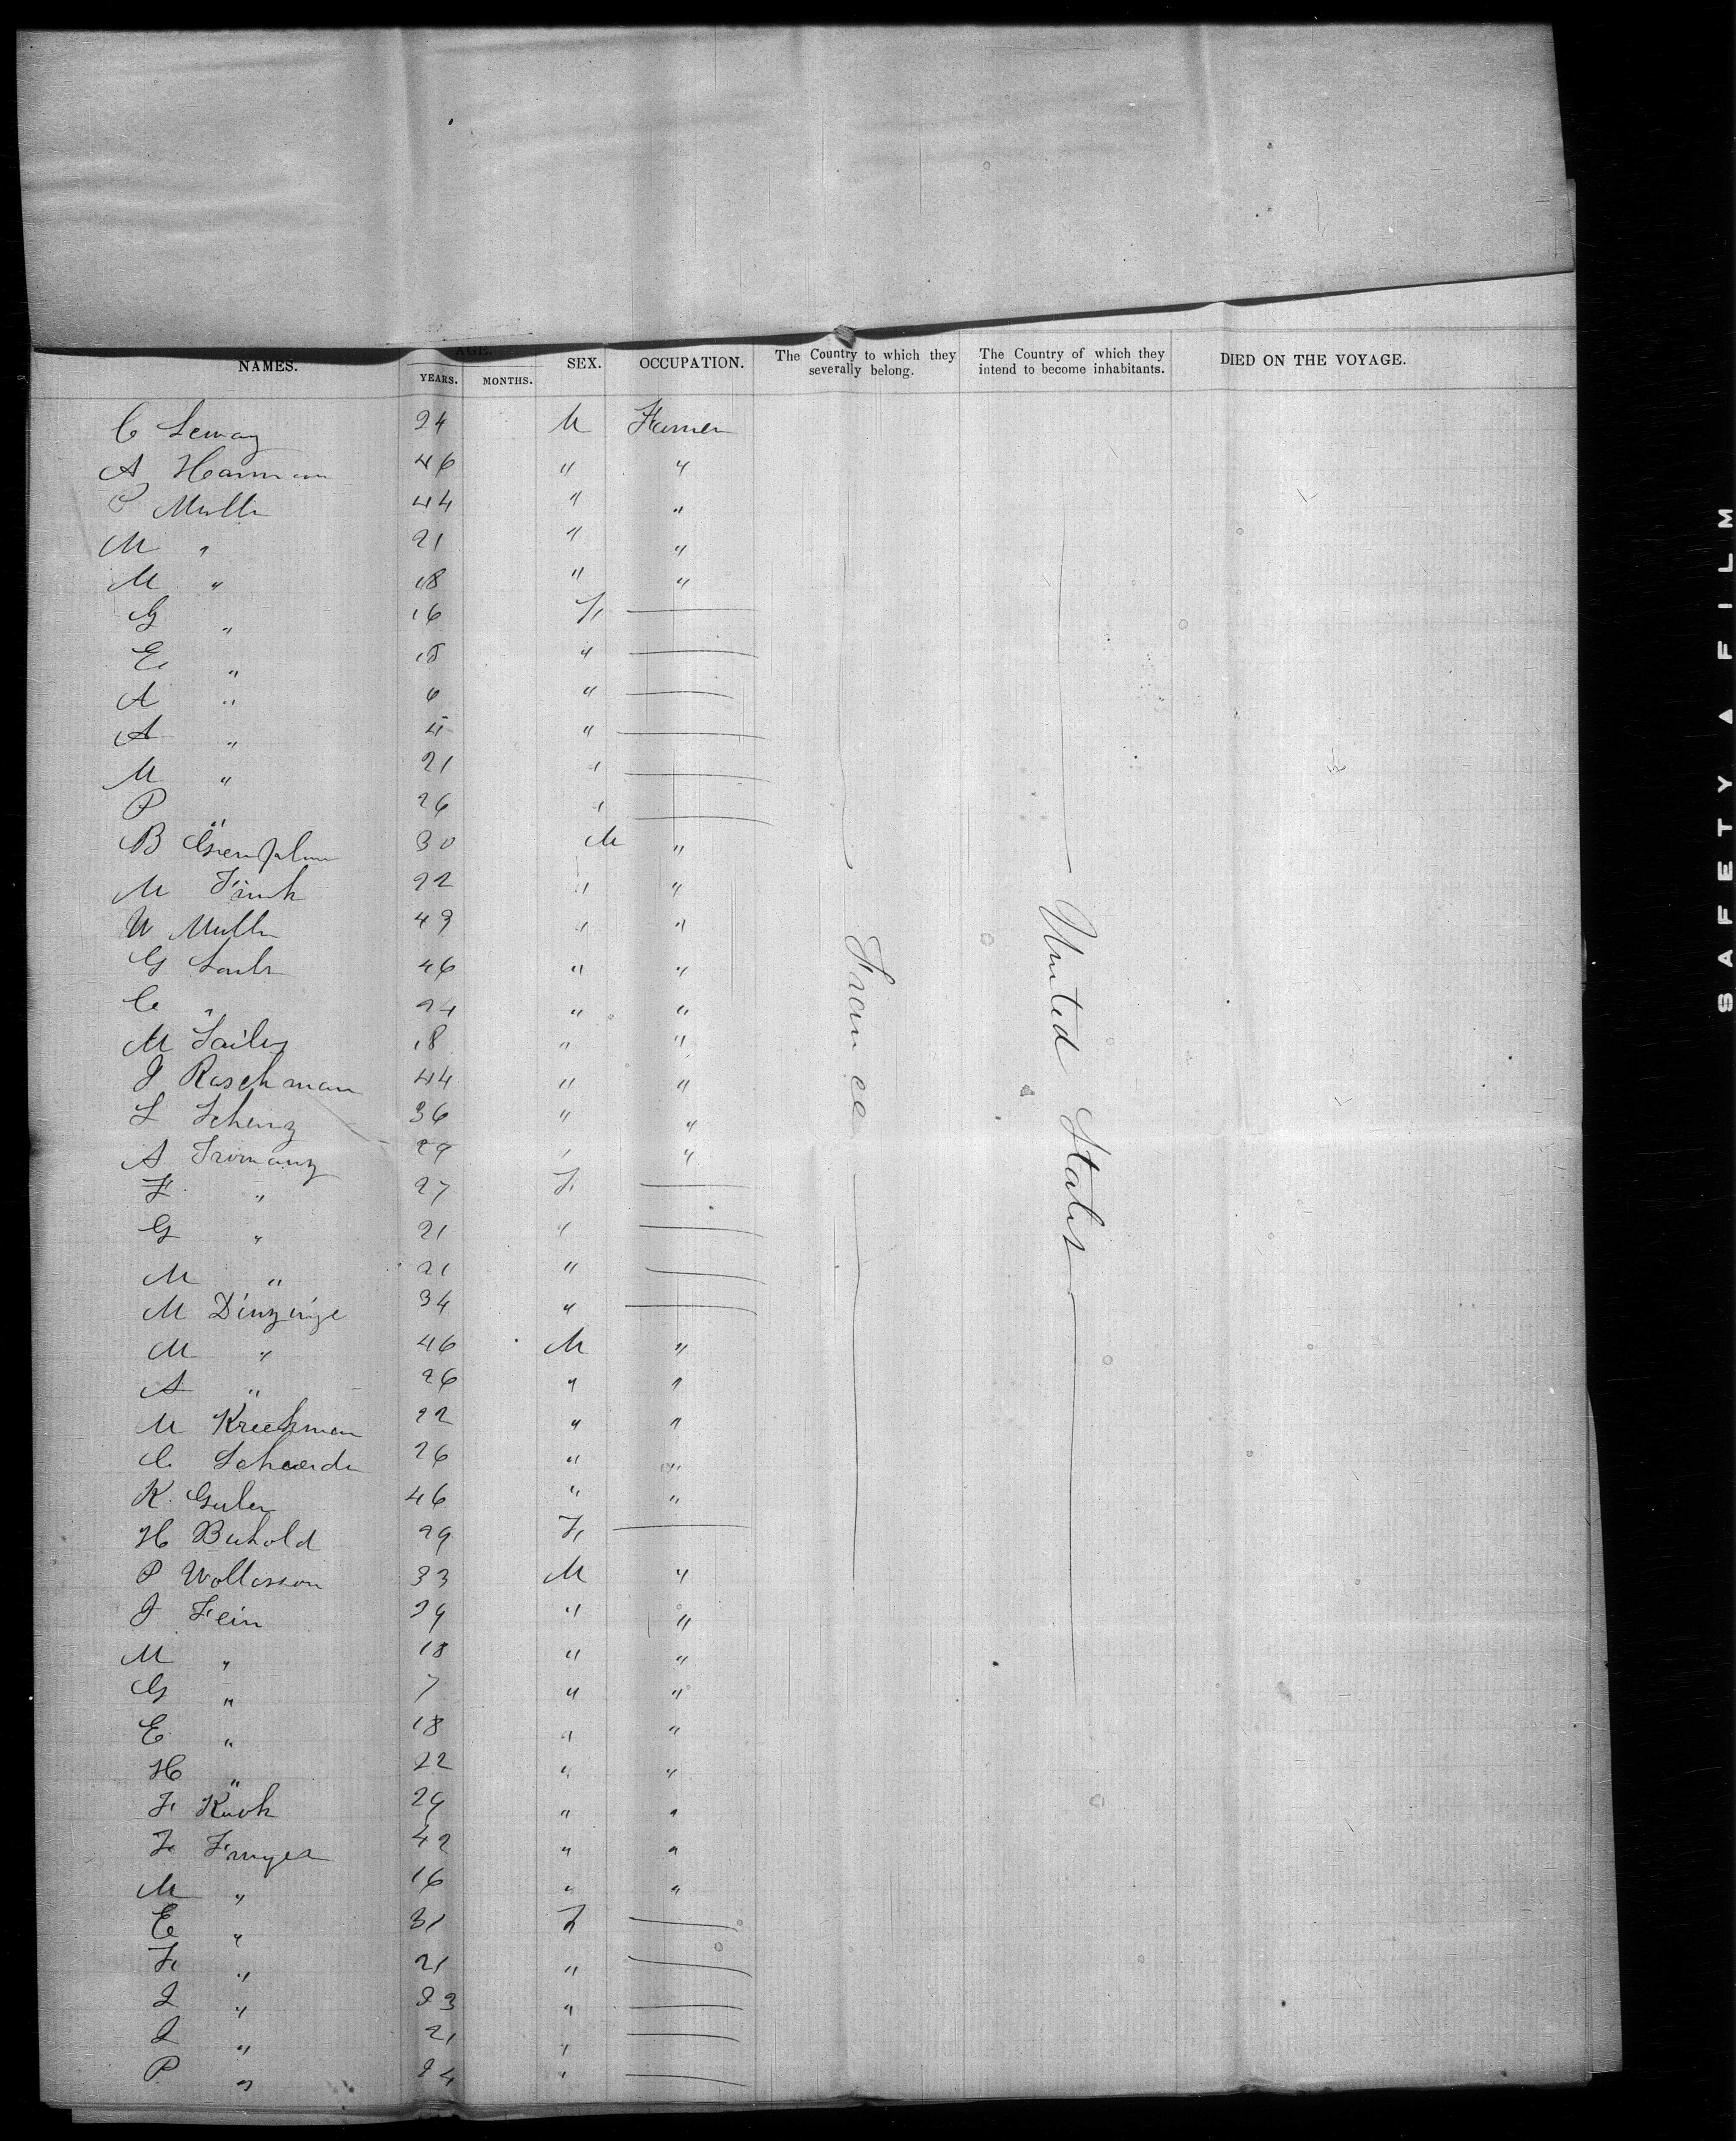 NAMES. AGE. YEARS. MONTHS. SEX. OCCUPATION. The Country to which they severally belong. The Country of which they intend to become inhabitants. DIED ON THE VOYAGE.
C Lemay 24 M Farmer
A Hamman 46 " "
C Mulle 44 " "
M " 21 " "
M " 18 " "
G " 16 F
E " 18 "
A " 6 "
A " 4 "
M " 21 "
P " 26 "
B 30 M "
M Funk 22 " "
W Mulle 43 " "
G 46 " "
C " 24 " "
M Sailer 18 " "
J Raschman 44 " "
L Schenz 36 " "
A 29 " "
F " 27 F
G " 21 "
M " 21 "
M Dinzinge 34 "
M " 46 M "
A " 26 " "
M Kreckman 22 " "
C 26 " "
K. Guler 46 " "
H Buhold 29 F
P Wollosson 33 M "
J Fein 39 " "
M " 18 " "
G " 7 " "
E " 18 " "
H " 22 " "
F Kuoh 29 " "
F 42 " "
M " 16 " "
E " 31 F
F " 21 "
I " 23 "
I " 21 "
P " 24 "
France
United States
SAFETY ▲ FILM